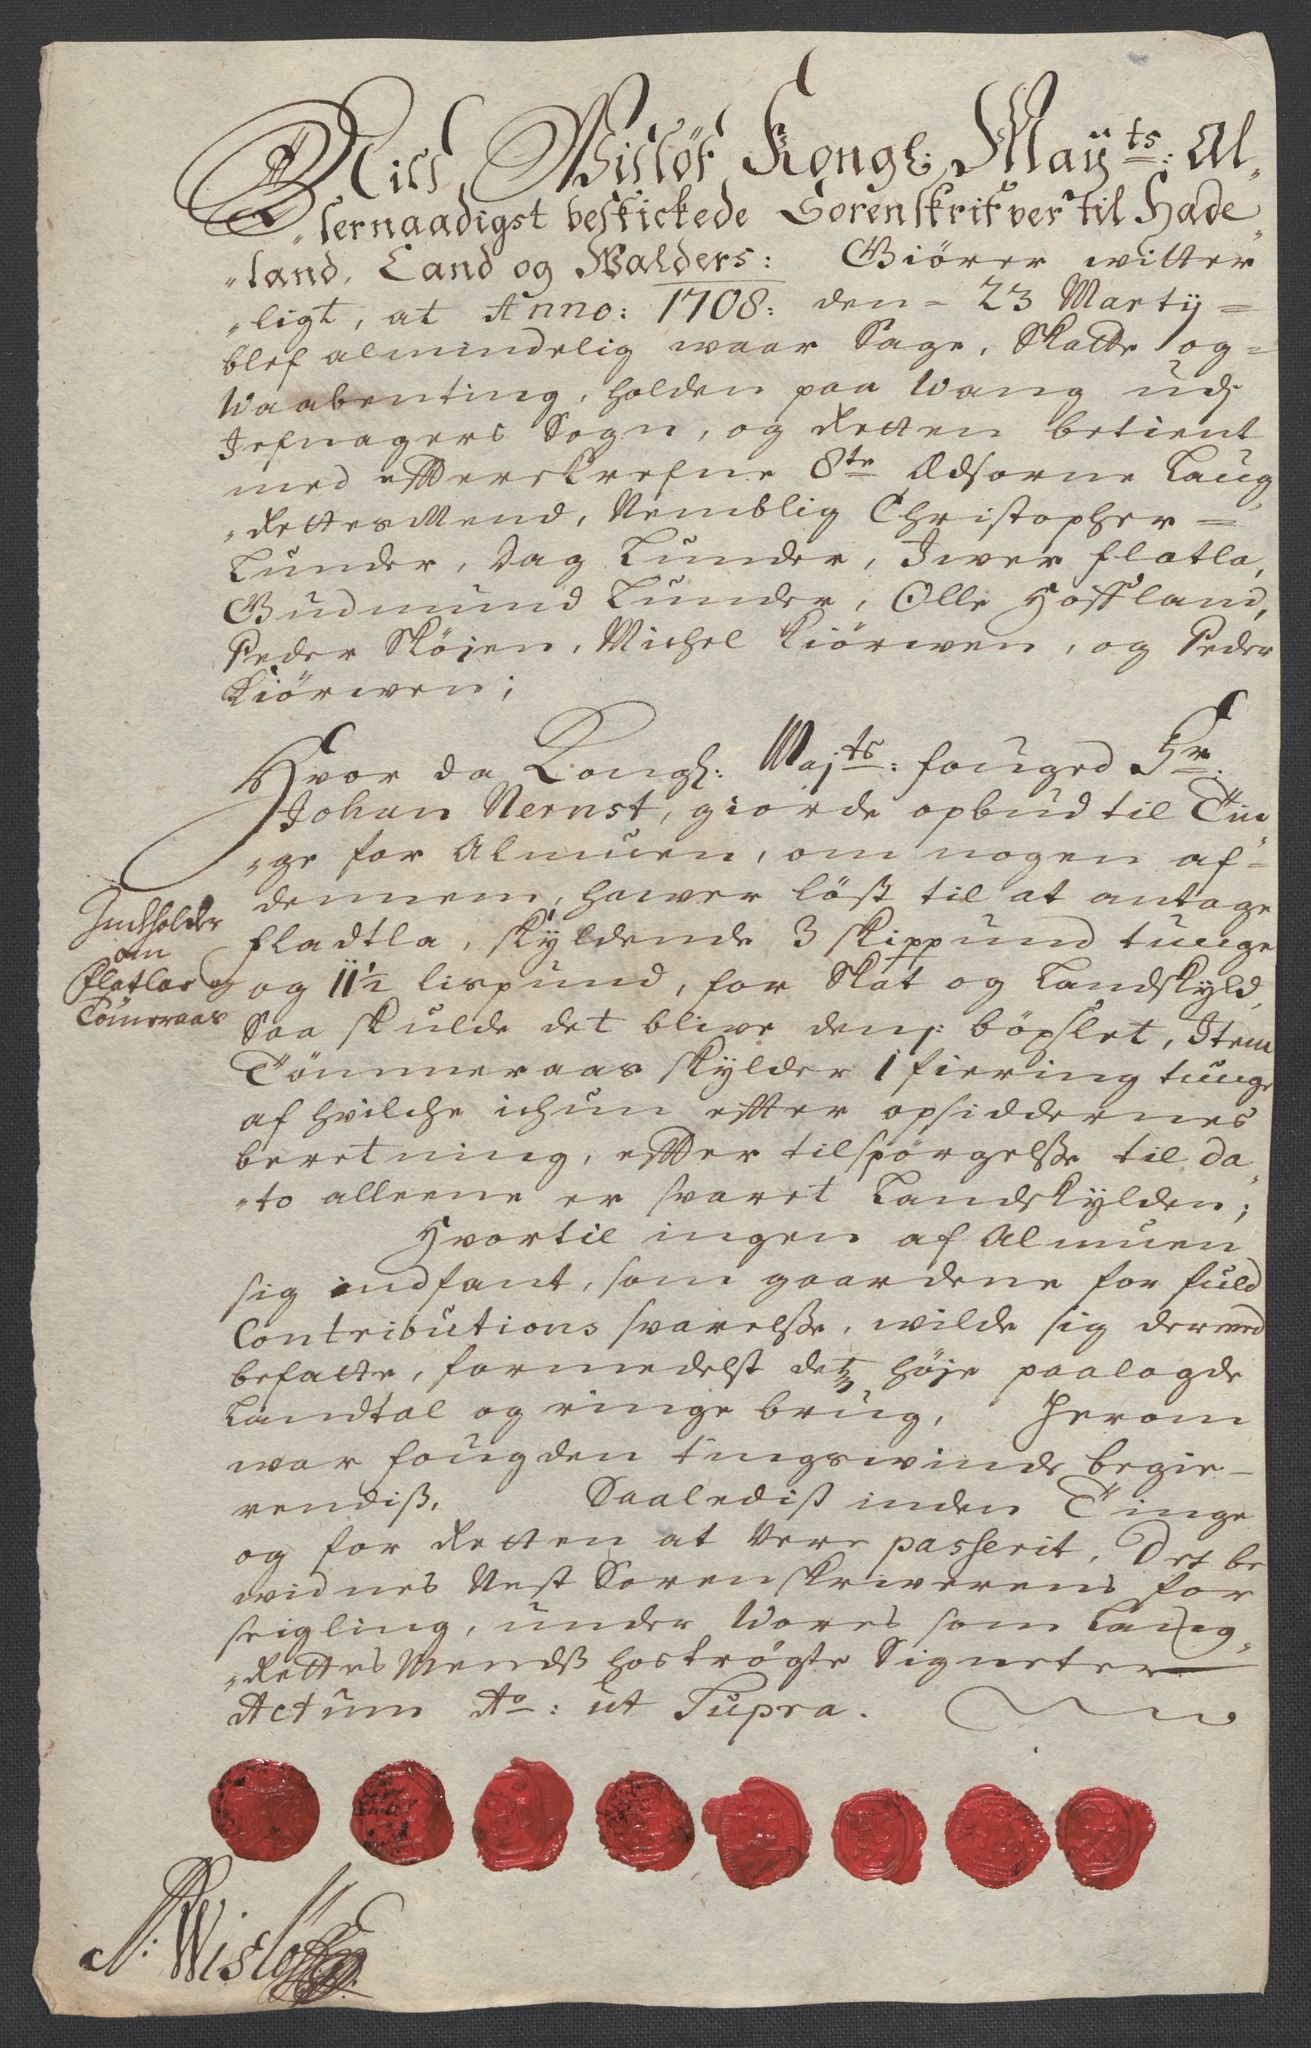 Nils Wislöf Kongl: Mayts: Al„
„lernaadigst beskickede Sorenskrifver til Hade„
„land, Land og Walders: Giörer witter„
„ligt, at Anno: 1708: den - 23 Marty =
blef almindelig waar Sage, Skatte og =
Waabenting, holden paa Wang udj
Jefnagers Sogn, og Retten betient
med effterskrefne 8te Edsorne Laug„
„Rettesmend, Nemblig Christopher =
Lunder, Dag Lunder, Iwer Flatla,
Gudmund Lunder, Olle Hoffland,
Peder Sköjen, Michel Kiörwen, og Peder
Kiörwen;
Hvor da Kongl: Majts: fouged Hr:
Johan Nernst, giorde opbud til Tin„
„ge for Almuen, om nogen af„
dennem, hawer löst til at antage
Fladtla, skyldende 3 skippund tunge
og 11½ lispund, for Skat og Landskyld,
Saa skulde det blive denj: böxslet, Item
Tönneraas skylder 1 fiering tunge
af hvilche ichun effter opsiddernes
beretning, effter tilspörgelsse til da„
„to alleene er svaret Landskylden;
Hvortil ingen af Almuen
sig indfant, som gaardene for fuld
Contributions svarelsse, wilde sig dermed
befatte, formedelst det höje paalagde
Landtal og ringe brug, Herom
war fougden tingswinde begie-
rendiß. Saalediß inden Tinge
og for Retten at were passerit, Det be
widnes Nest Sorenskriwerens for
seigling, under Wores som Laug„
„Rettes Mendß hoströgte Signeter
Actum Ao: ut Supra.
Indholder
om
Flatla og
Tönneraas
N: Wislöff